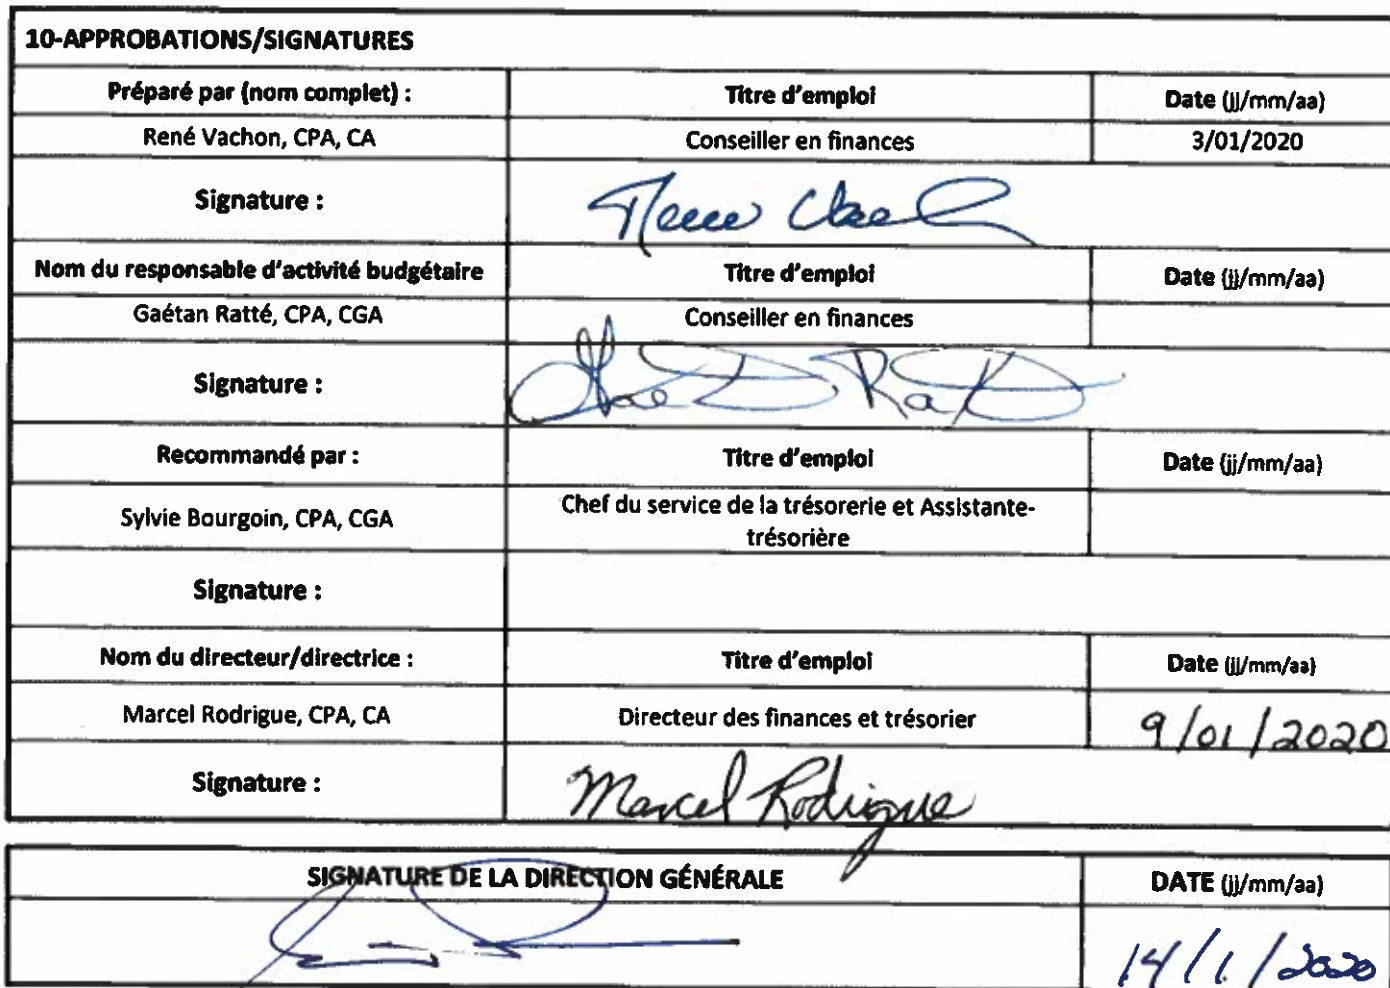 10-APPROBATIONS/SIGNATURES
Préparé par (nom complet) : Titre d'emploi Date (jj/mm/aa)
René Vachon, CPA, CA Conseiller en finances 3/01/2020
Signature :
Nom du responsable d'activité budgétaire Titre d'emploi Date (jj/mm/aa)
Gaétan Ratté, CPA, CGA Conseiller en finances
Signature :
Recommandé par : Titre d'emploi Date (jj/mm/aa)
Sylvie Bourgoin, CPA, CGA Chef du service de la trésorerie et Assistante-
trésorière
Signature :
Nom du directeur/directrice : Titre d'emploi Date (jj/mm/aa)
Marcel Rodrigue, CPA, CA Directeur des finances et trésorier 9/01/2020
Signature : Marcel Rodrigue
SIGNATURE DE LA DIRECTION GÉNÉRALE DATE (jj/mm/aa)
14/1/2020